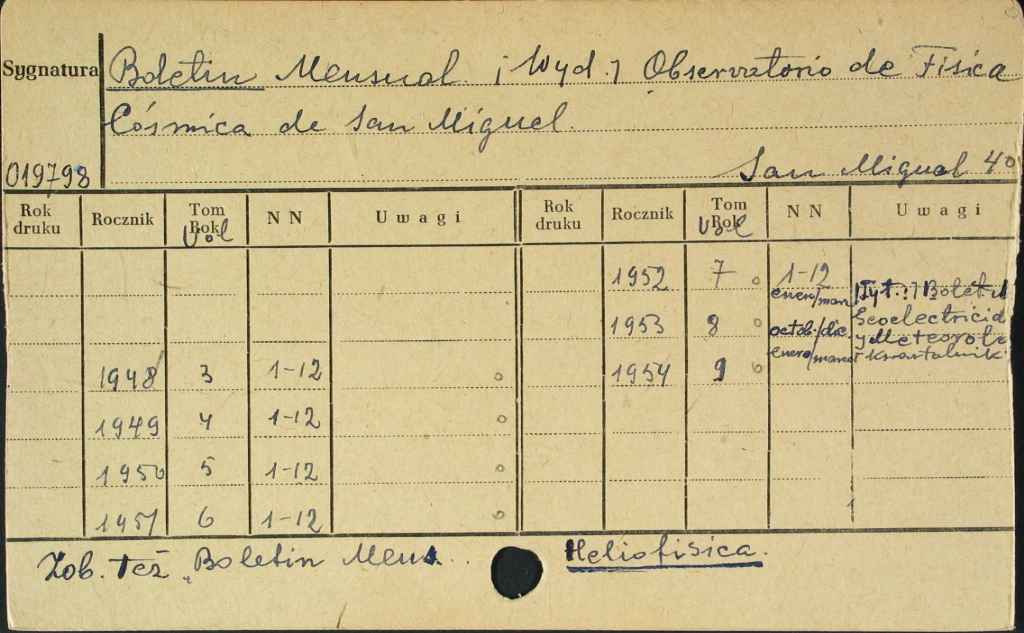 Sygnatura Boletin Mensual. [Wyd.] Observatorio de Fisica
Cósmica de San Miguel.
019798 San Miguel 4°
Rok druku Rocznik Tom Rok Vol NN Uwagi Rok druku Rocznik Tom Rok Vol NN Uwagi
1952 7 1-12
enero/marz [Tyt.:] Boletin
1953 8 octob./dic. Geoelectricid
y Meteorolo
1954 9 enero/marzo kwartalnik
1948 3 1-12
1949 4 1-12
1950 5 1-12
1951 6 1-12
Zob. też "Boletin Mens... Heliofisica.